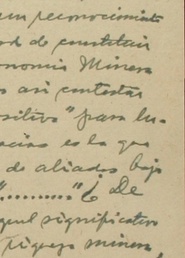 reconocimiento
de constituir
Minera
asi contestar
sitivo" para lu-
es la que
de aliados bajo
"..........." ¿ De
significativo
minera,